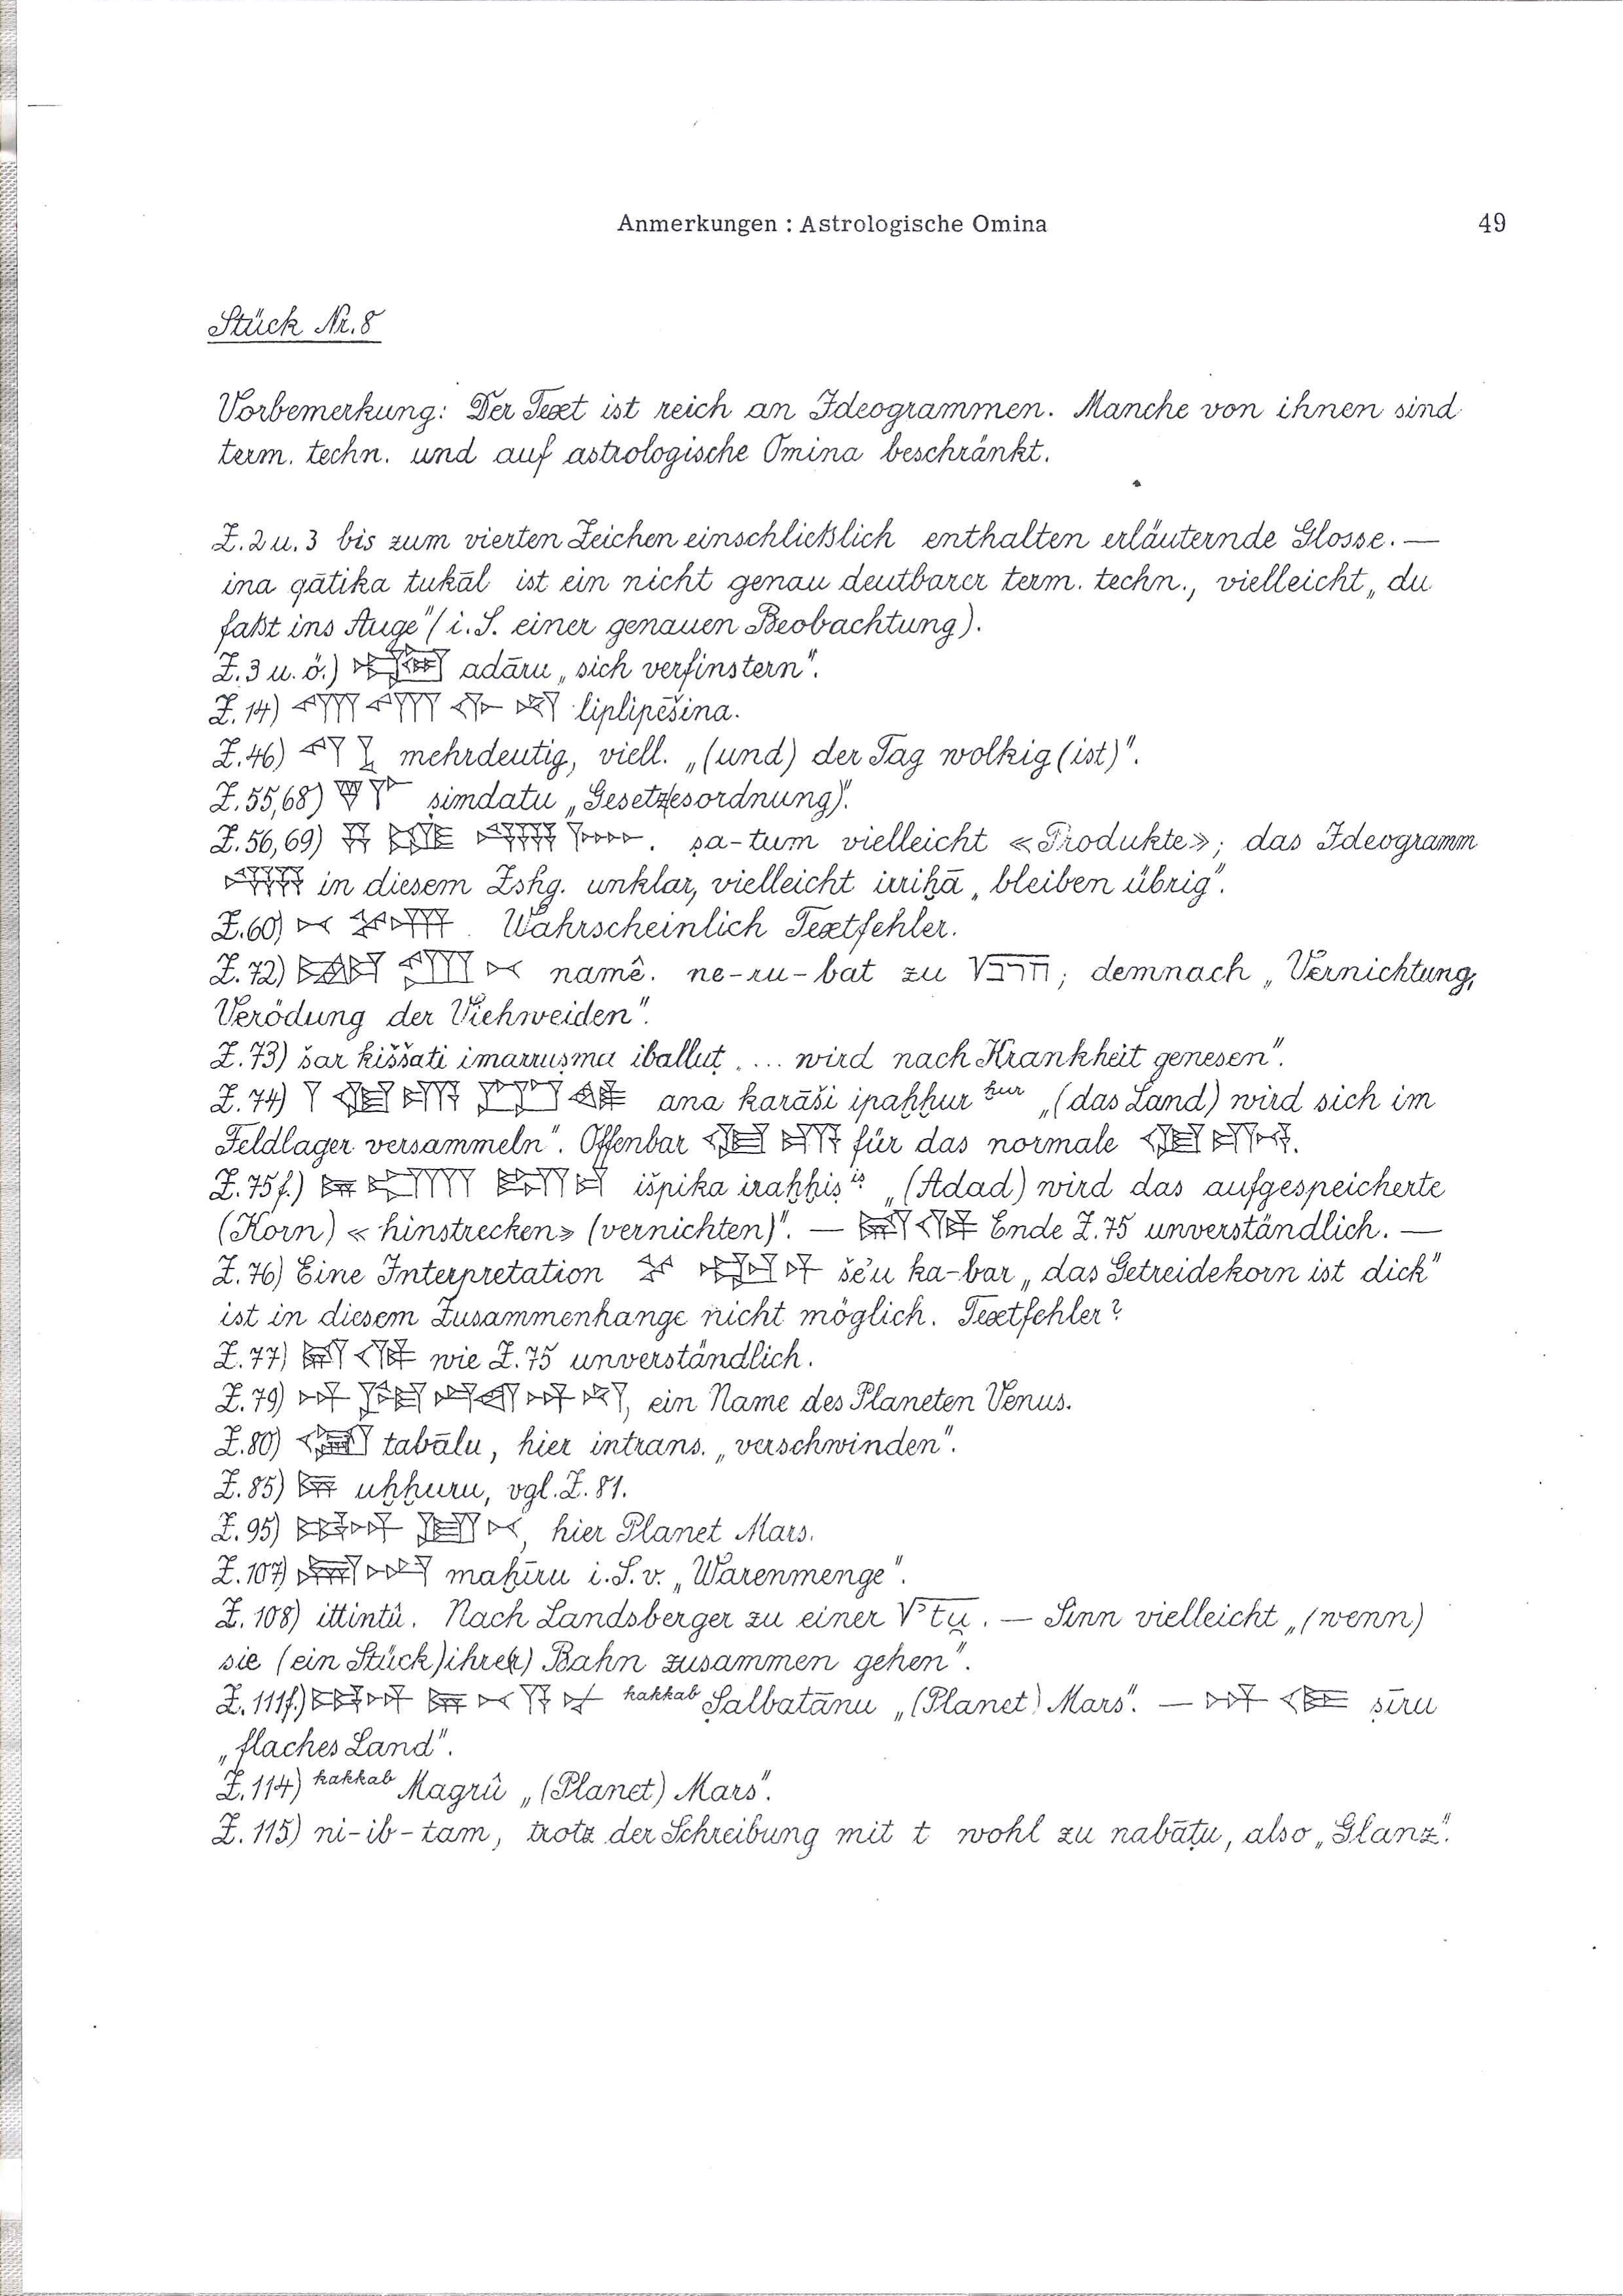 Anmerkungen : Astrologische Omina 49
Stück Nr. 8
Vorbemerkung: Der Text ist reich an Ideogrammen. Manche von ihnen sind
term. techn. und auf astrologische Omina beschränkt.
Z. 2 u. 3 bis zum vierten Zeichen einschließlich enthalten erläuternde Glosse. —
ina qātika tukāl ist ein nicht genau deutbarer term. techn., vielleicht „du
faßt ins Auge" (i. S. einer genauen Beobachtung).
Z. 3 u. ö.) adāru „sich verfinstern".
Z. 14) liplipēšina.
Z. 46) mehrdeutig, viell. „(und) der Tag wolkig (ist)".
Z. 55, 68) ṣimdatu „Gesetzesordnung)".
Z. 56, 69) ṣa-tum vielleicht «Produkte»; das Ideogramm
in diesem Zshg. unklar, vielleicht irriḫā „bleiben übrig".
Z. 60) Wahrscheinlich Textfehler.
Z. 72) namê. ne-ru-bat zu ; demnach „Vernichtung,
Verödung der Viehweiden".
Z. 73) šar kiššati imarruṣma iballuṭ „... wird nach Krankheit genesen".
Z. 74) ana karāši ipaḫḫur ḫur „(das Land) wird sich im
Feldlager versammeln". Offenbar für das normale
Z. 75 f.) išpika iraḫḫiṣ iṣ „(Adad) wird das aufgespeicherte
(Korn) «hinstrecken» (vernichten)". — Ende Z. 75 unverständlich. —
Z. 76) Eine Interpretation še'u ka-bar „das Getreidekorn ist dick"
ist in diesem Zusammenhange nicht möglich. Textfehler?
Z. 77) wie Z. 75 unverständlich.
Z. 79) , ein Name des Planeten Venus.
Z. 80) tabālu, hier intrans. „verschwinden".
Z. 85) uḫḫuru, vgl. Z. 81.
Z. 95) , hier Planet Mars.
Z. 107) maḫīru i. S. v. „Warenmenge".
Z. 108) ittintû. Nach Landsberger zu einer √tu̯. — Sinn vielleicht „(wenn)
sie (ein Stück) ihrer) Bahn zusammen gehen".
Z. 111 f.) kakkab Ṣalbatānu „(Planet) Mars". — ṣēru
„flaches Land".
Z. 114) kakkab Magrû „(Planet) Mars".
Z. 115) ni-ib-tam, trotz der Schreibung mit t wohl zu nabāṭu, also „Glanz".